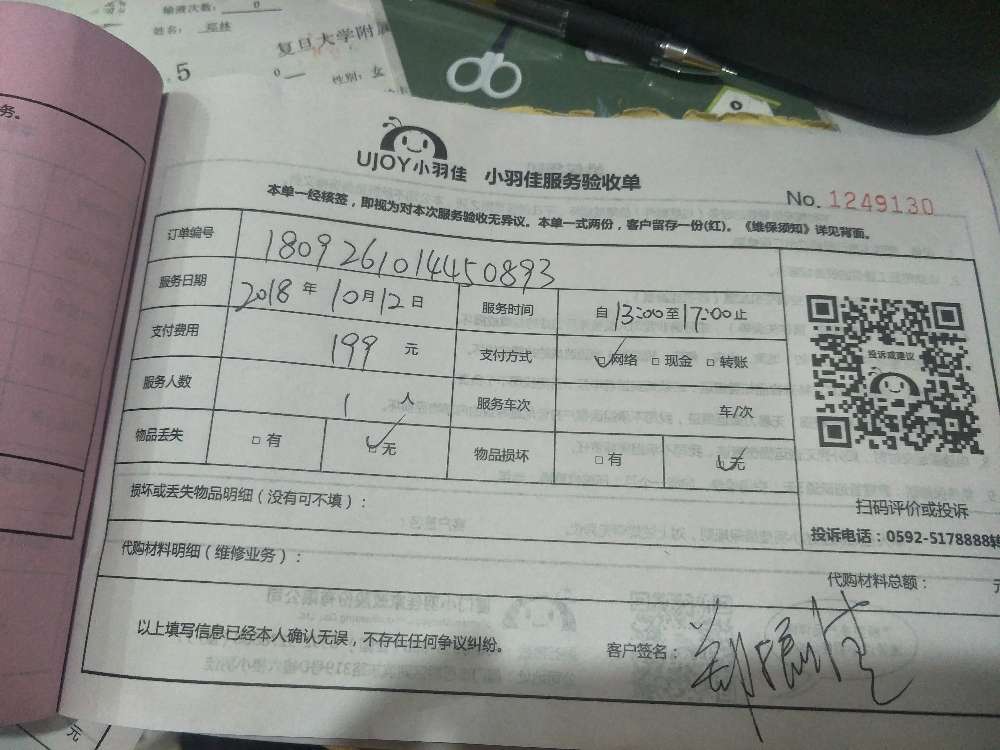 输液次数: 0
姓名:
复旦大学附属
.5
0
性别: 女
务。
UJOY小羽佳 小羽佳服务验收单
No. 1249130
本单一经核签，即视为对本次服务验收无异议。本单一式两份，客户留存一份(红)。《维保须知》详见背面。
订单编号 1809261014450893
服务日期 2018 年 10 月 12 日 服务时间 自 13:00 至 17:00 止
支付费用 199 元 支付方式 ☑网络 □现金 □转账
服务人数 1 人 服务车次 车/次
物品丢失 □有 ☑无 物品损坏 □有 ☑无
投诉或建议
扫码评价或投诉
投诉电话：0592-5178888转
损坏或丢失物品明细（没有可不填）：
代购材料明细（维修业务）：
代购材料总额： 元
以上填写信息已经本人确认无误，不存在任何争议纠纷。
客户签名：
元